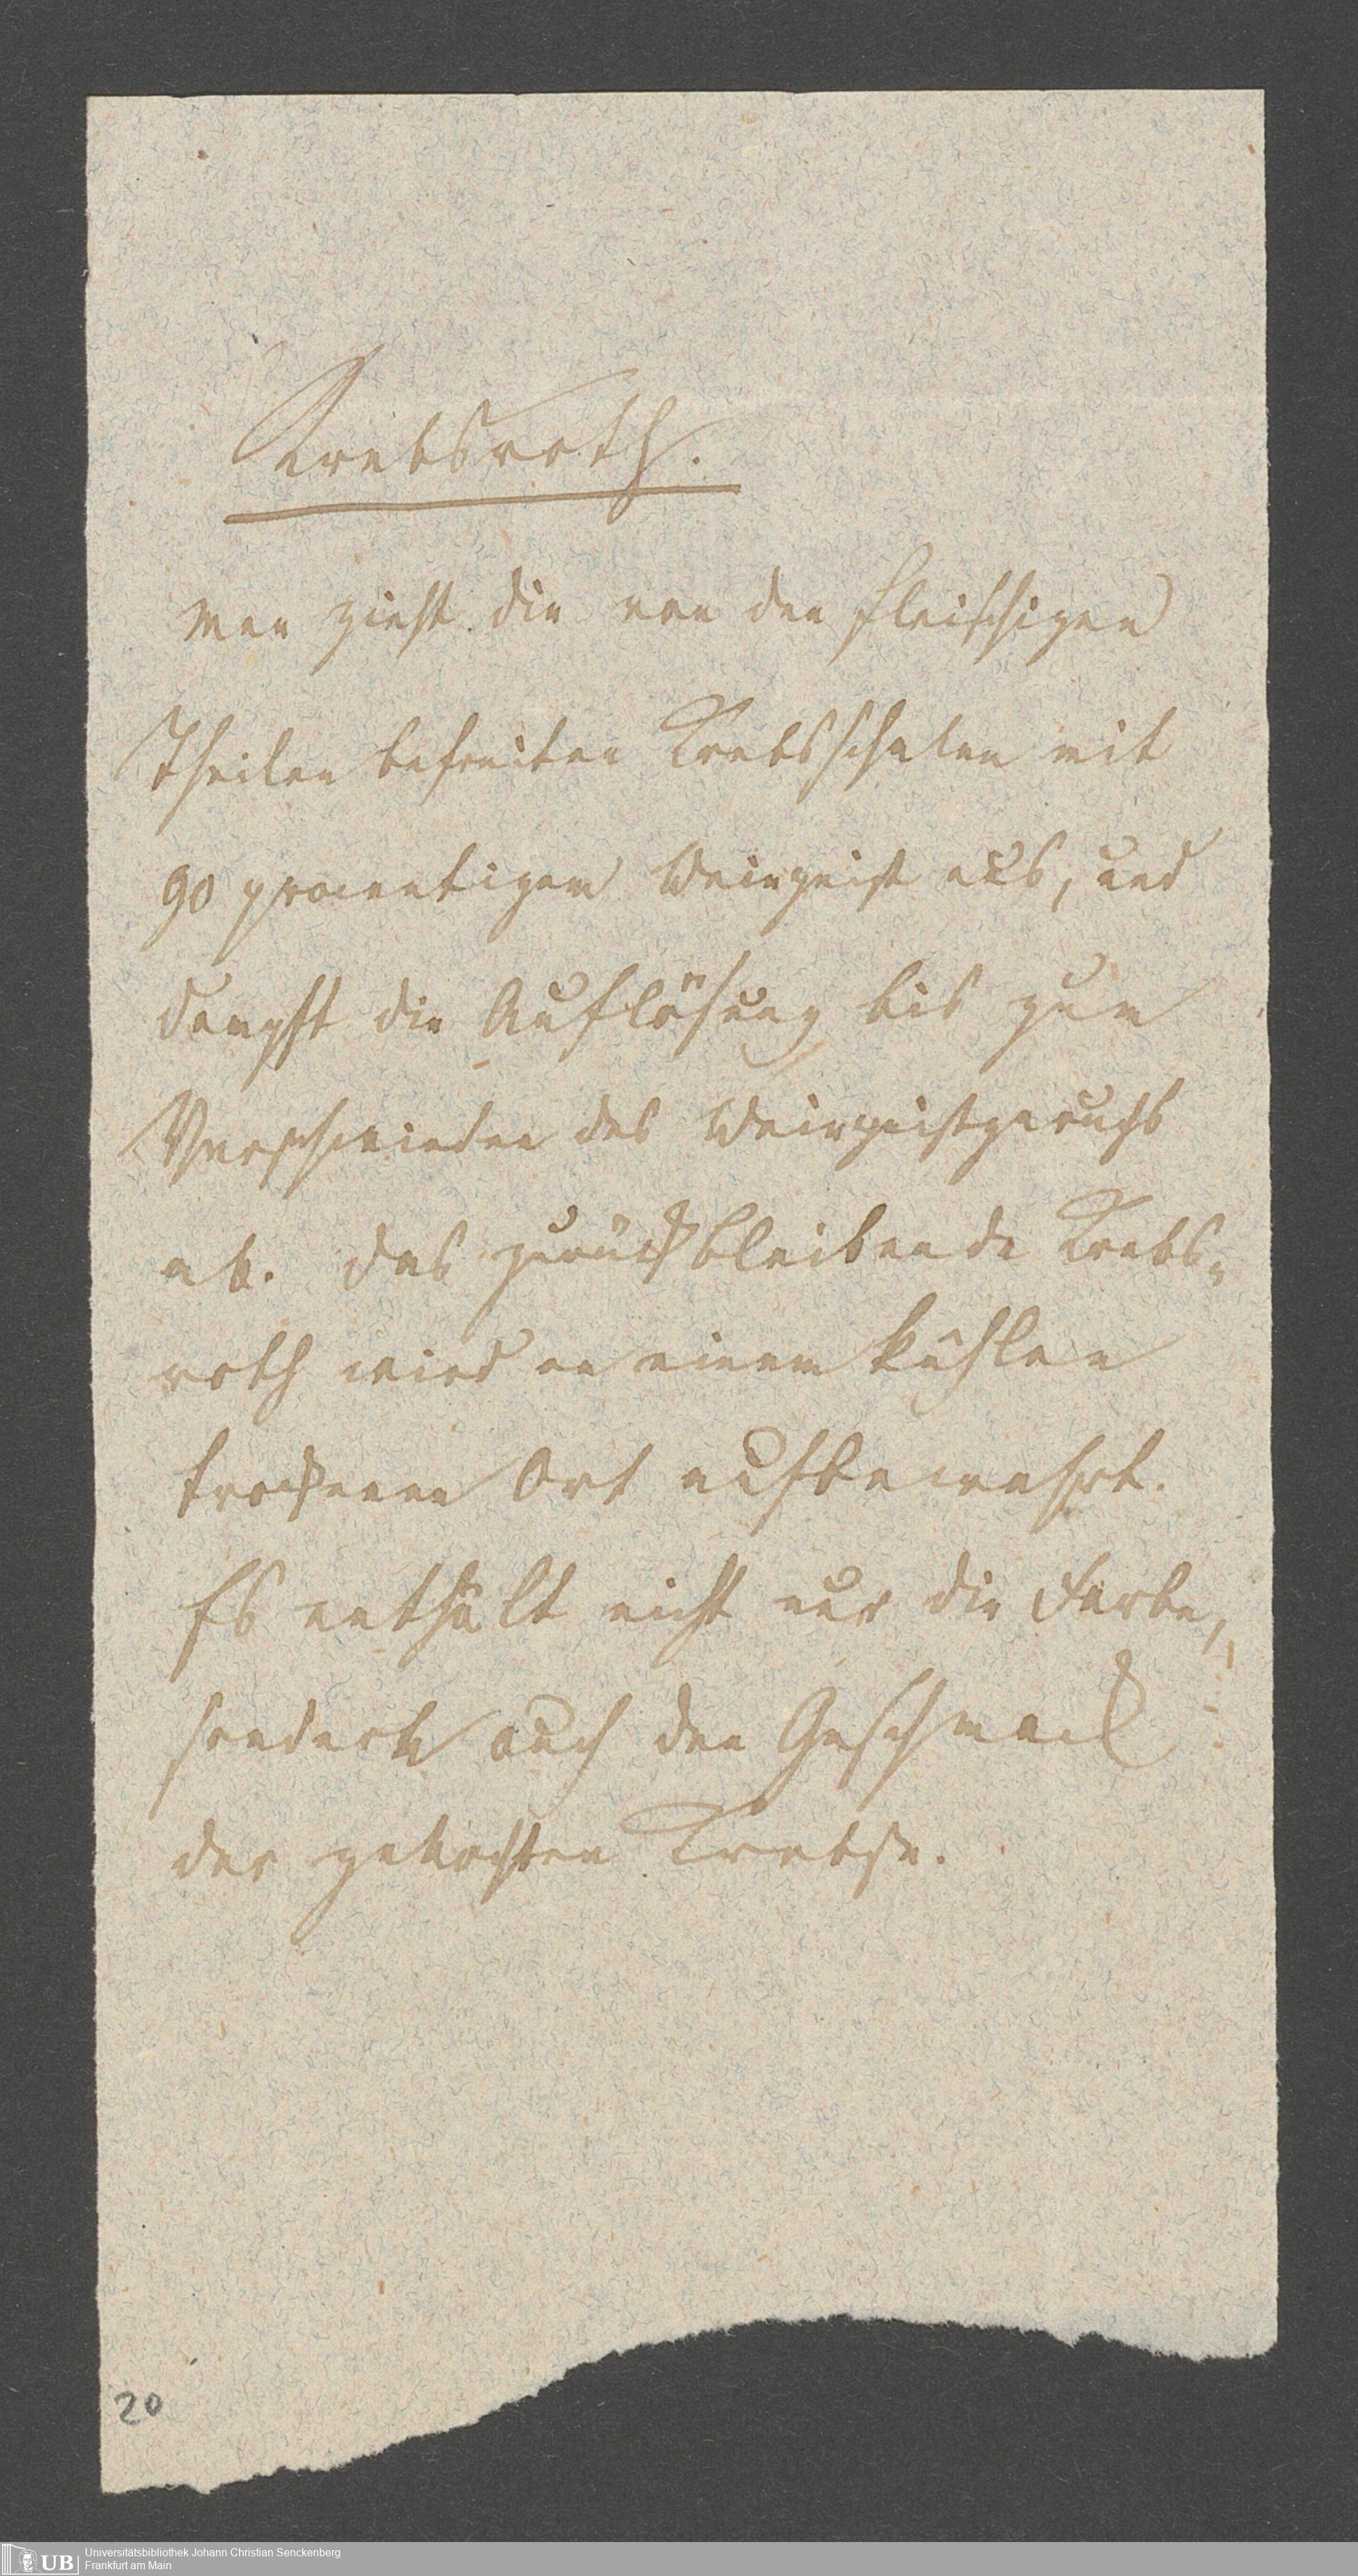 Krebsroth.
Man zieht die von den fleischigen
Theilen befreiten Krebsschalen mit
90 procentigem Weingeist aus, und
dampft die Auflösung bis zum
Verschwinden des Weingeistgeruchs
ab. Das zurückbleibende Krebs-
roth wird an einem kühlen
trockenen Ort aufbewahrt.
Es enthält nicht nur die Farbe,
sondern auch den Geschmack
der gekochten Krebse.
20
UB
Universitätsbibliothek Johann Christian Senckenberg
Frankfurt am Main